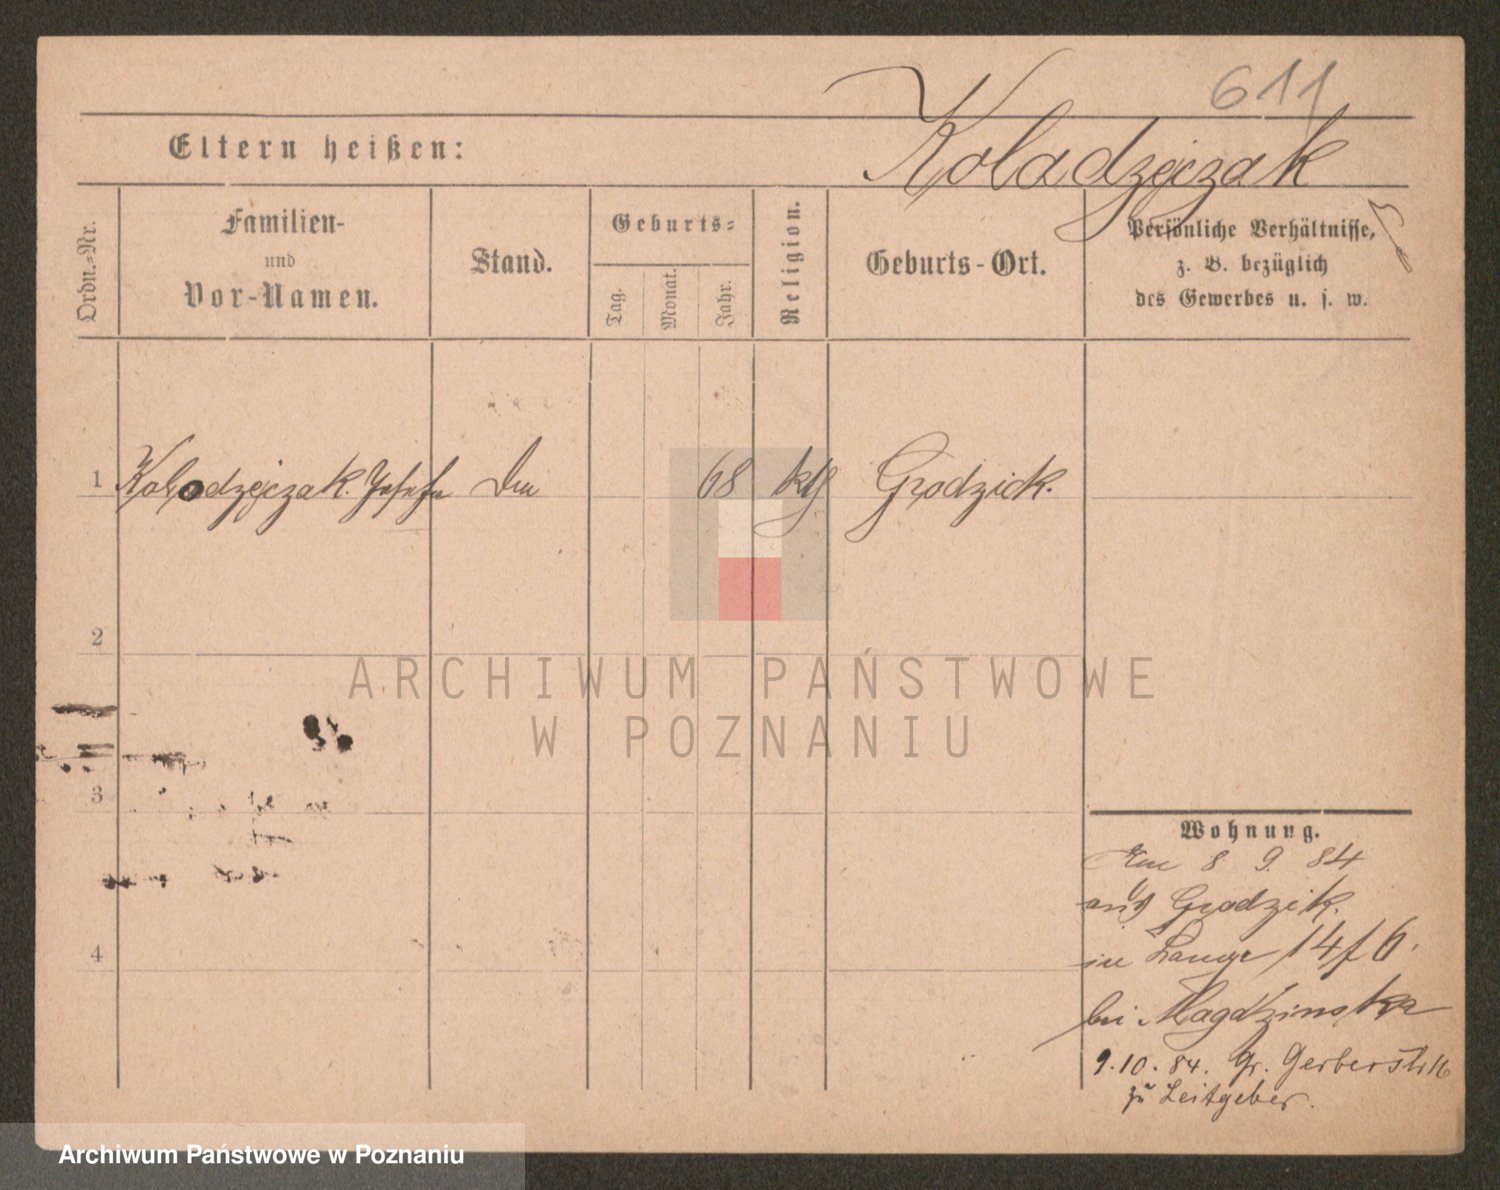 611
Eltern heißen:
Koladzejczak
Ordn.-Nr.
Familien-
und
Vor-Namen.
Stand.
Geburts-
Tag.
Monat.
Jahr.
Religion.
Geburts-Ort.
Persönliche Verhältnisse,
z. B. bezüglich
des Gewerbes u. s. w.
1 Kolodzejczak. Josefa 68 kth Grodzick.
2
ARCHIWUM PAŃSTWOWE
W POZNANIU
3
Wohnung.
8 9. 84
aus Grodzik.
in Lange 14/6.
bei Magdzinska
4
9.10.84. Gr. Gerberstr 16
zu Leitgeber.
Archiwum Państwowe w Poznaniu